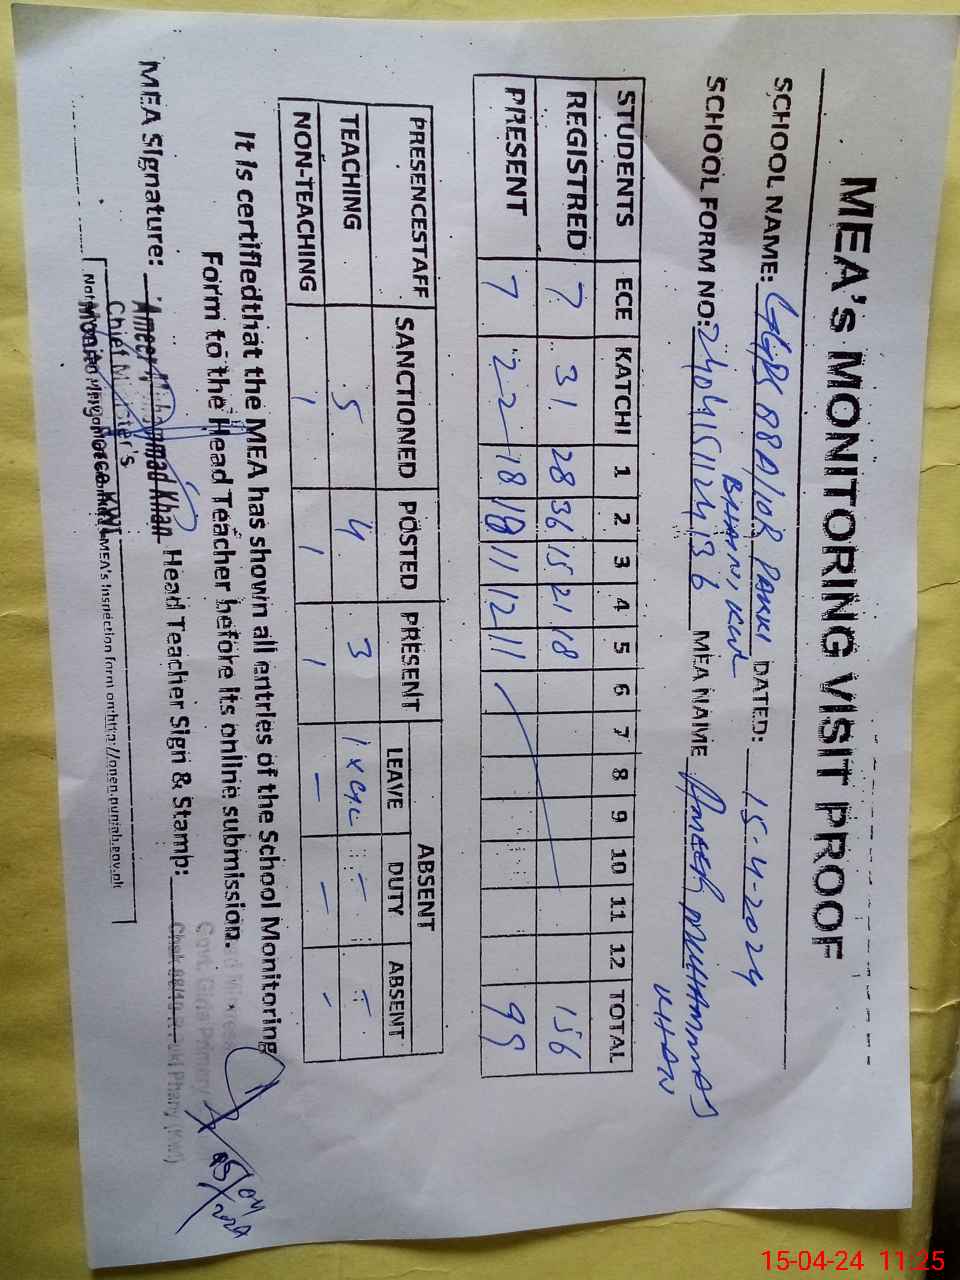 MEA's MONITORING VISIT PROOF
SCHOOL NAME: GGPS 88A/10R PAKKI DATED: 15-4-2024
SCHOOL FORM NO: MEA NAME AMEER MUHAMMAD
KHAN
STUDENTS ECE KATCHI 1 2 3 4 5 6 7 8 9 10 11 12 TOTAL
REGISTRED 7 31 28 36 15 21 18 156
PRESENT 7 22 18 18 11 12 11 99
PRESENCESTAFF SANCTIONED POSTED PRESENT ABSENT
LEAVE DUTY ABSENT
TEACHING 5 4 3 1 - -
NON-TEACHING 1 1 1 - - -
It is certifiedthat the MEA has shown all entries of the School Monitoring
Form to the Head Teacher before its online submission.
MEA Signature: Ameer Muhammad Khan Head Teacher Sign & Stamp:
Chief Minister's
MEA's Inspection form on:http://open.punjab.gov.pk
Govt. Girls Primary
04
2024
15-04-24 11:25